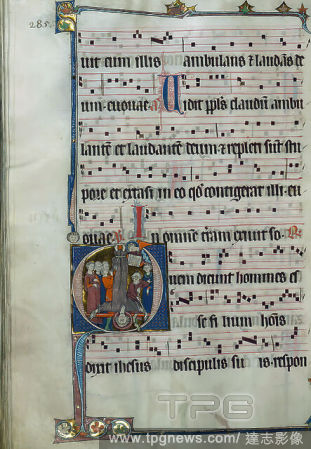 285.
uit cum illis ambulans ⁊ laudãs de
um. euouae. a. Uidit ppłs claudũ ambu
lantẽ et laudantẽ deum. ⁊ repleti sũt stu
pore et extasi in eo qđ contigerat illi. eu
ouae. In omnẽ trãm exiuit so. R.
Quem dicunt homines es
se filium hoĩs
dixit ihesus discipulis su is. respon
TPG
www.tpgnews.com/ 達志影像